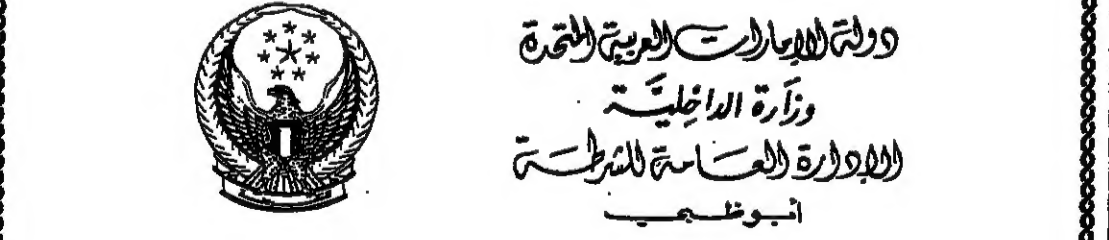 دولة الإمارات العربية المتحدة
وزارة الداخليَّة
الإدارة العامة للشرطة
أبوظبي